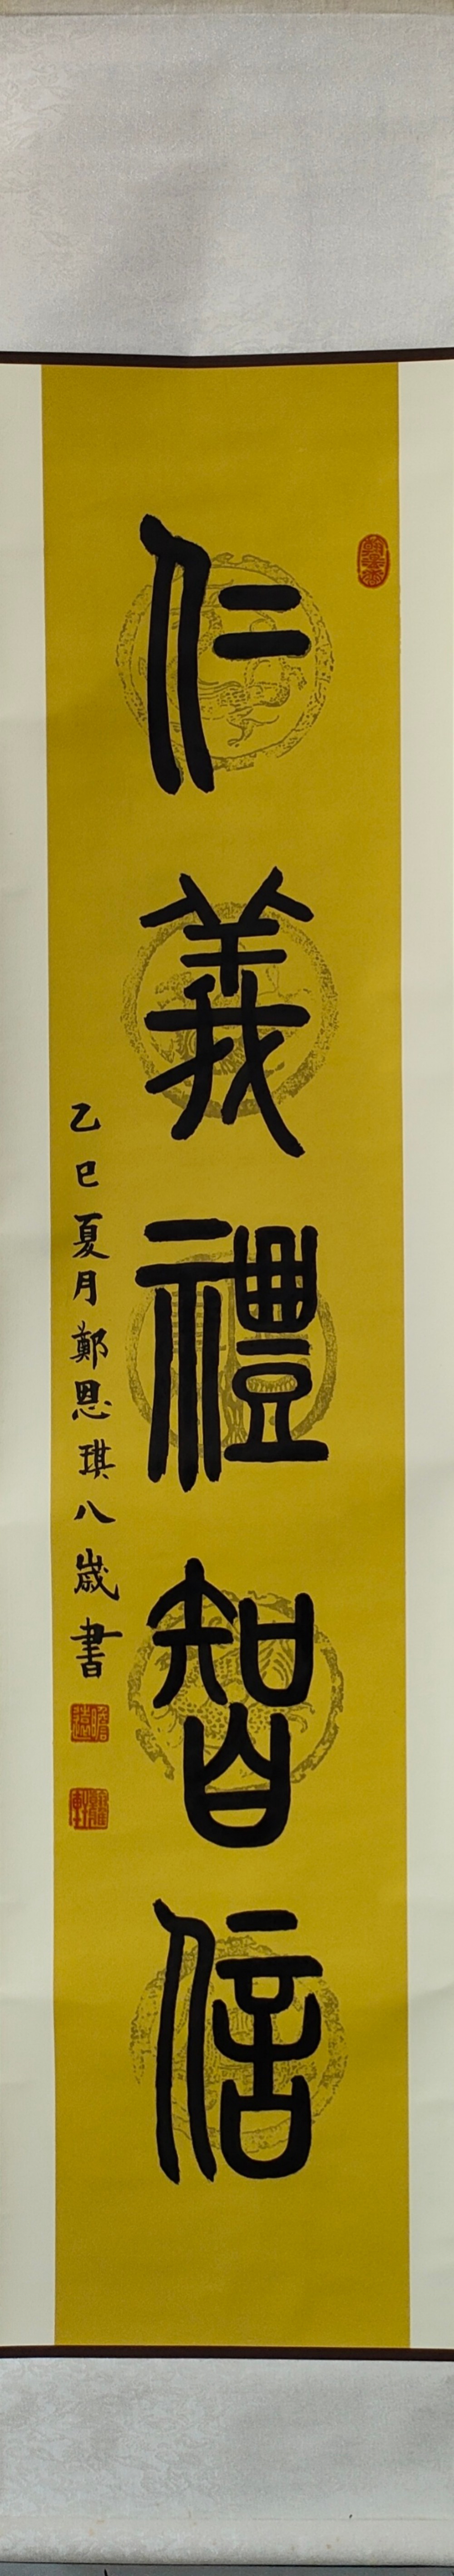 仁義禮智信
乙巳夏月鄭恩琪八歲書